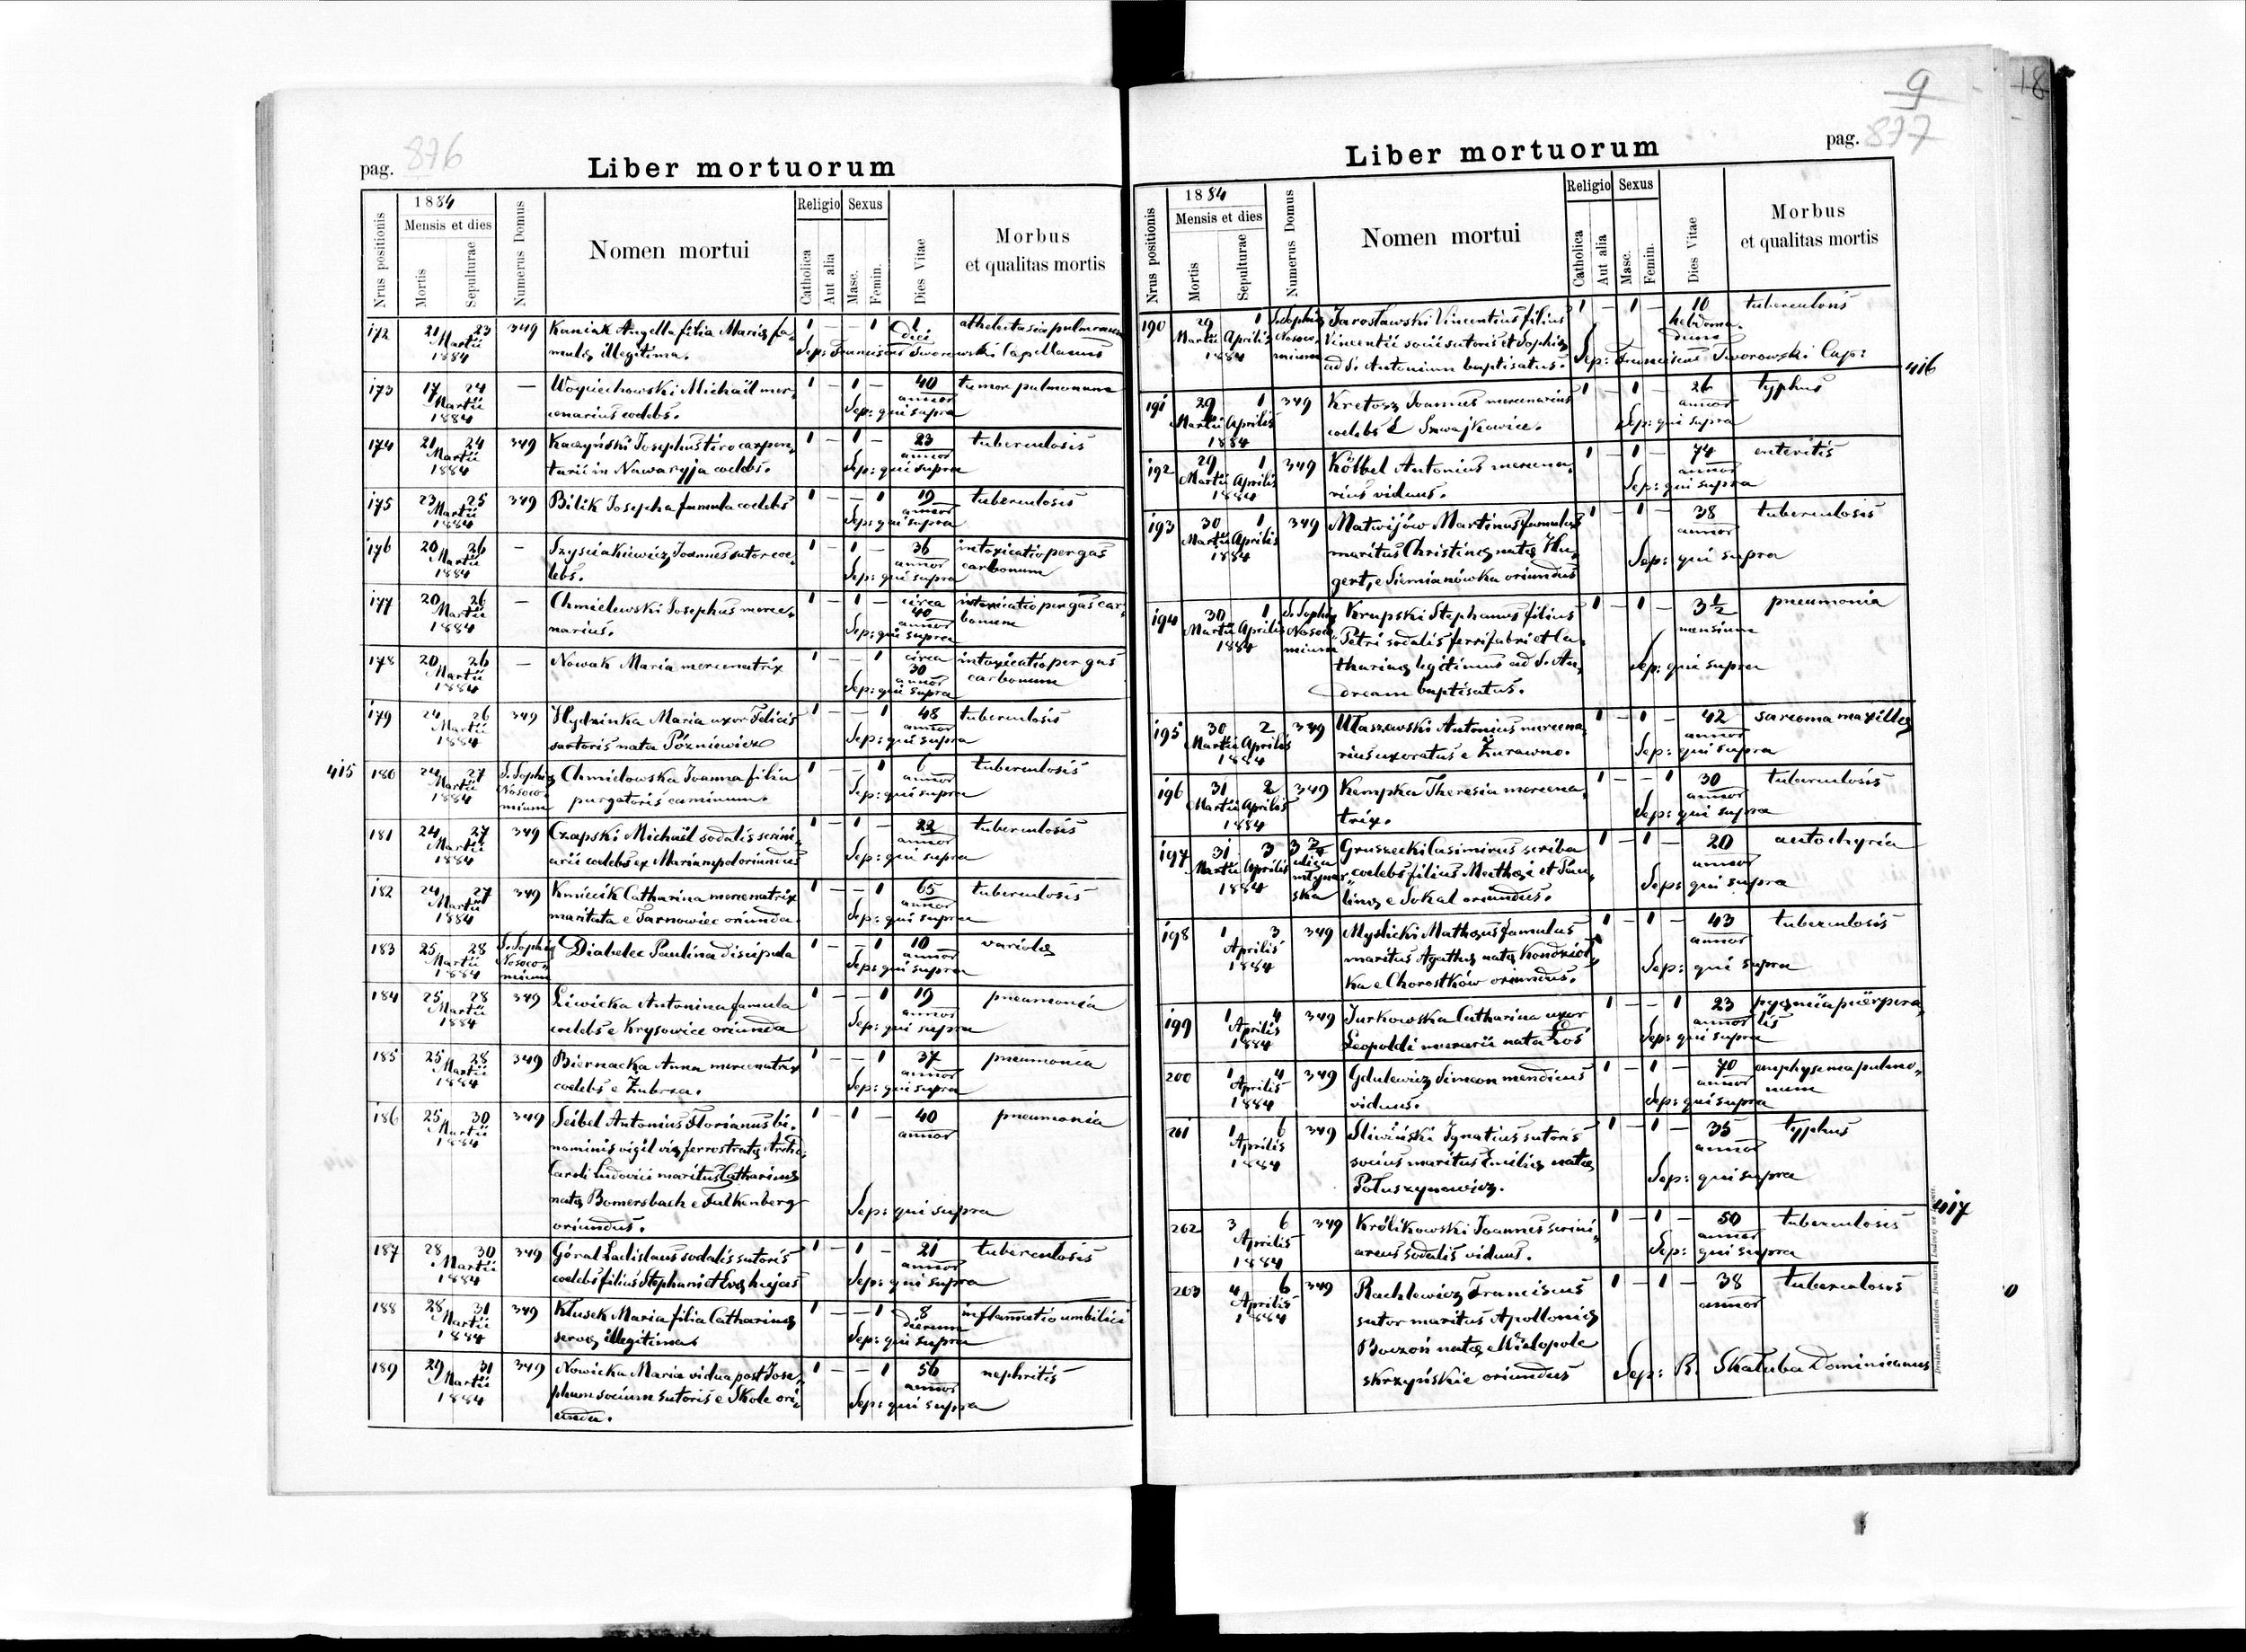 pag. 876
Liber mortuorum
1884
Mensis et dies
Nrus positionis
Mortis
Sepulturae
Numerus Domus
Nomen mortui
Religio
Catholica
Aut alia
Sexus
Masc.
Femin.
Dies Vitae
Morbus
et qualitas mortis
172 21 23 349 Kaniak Angella filia Mariæ fa- 1 — — 1 1 athelectasia pulmonum
Martii mulæ illegitima. diei
1884 Sep: Franciscus Tworowski Capellanus
173 17 24 — Woyciechowski Michaël mer- 1 — 1 — 40 tumor pulmonum
Martii cenarius coelebs. annor
1884 Sep: qui supra
174 21 24 349 Kaczyński Josephus tiro carpen- 1 — 1 — 23 tuberculosis
Martii tarii in Nawaryja coelebs. annor
1884 Sep: qui supra
175 23 25 349 Bilik Josepha famula coelebs 1 — — 1 19 tuberculosis
Martii annor
1884 Sep: qui supra
176 20 26 — Szysciakiewicz Joannes sutor coe- 1 — 1 — 36 intoxicatio per gas
Martii lebs. annor carbonum
1884 Sep: qui supra
177 20 26 — Chmielewski Josephus merce- 1 — 1 — circa intoxicatio per gas car-
Martii narius. 40 annor bonum
1884 Sep: qui supra
178 20 26 — Nowak Maria mercenatrix 1 — — 1 circa intoxicatio per gas
Martii 30 annor carbonum
1884 Sep: qui supra
179 24 26 349 Hydzinka Maria uxor Felicis 1 — — 1 48 tuberculosis
Martii sartoris nata Pózniewicz annor
1884 Sep: qui supra
415 180 24 27 S. Sophiæ Chmielowska Joanna filia 1 — — 1 6 tuberculosis
Martii Nosoco- purgatoris caminum. annor
1884 mium Sep: qui supra
181 24 27 349 Czapski Michaël sodalis scrini- 1 — 1 — 22 tuberculosis
Martii arii coelebs ex Mariampol oriundus annor
1884 Sep: qui supra
182 24 27 349 Kmiecik Catharina mercenatrix 1 — — 1 65 tuberculosis
Martii maritata e Tarnowiec oriunda. annor
1884 Sep: qui supra
183 25 28 S. Sophiæ Diabelec Paulina discipula 1 — — 1 10 variolæ
Martii Nosoco- annor
1884 mium Sep: qui supra
184 25 28 349 Liwicka Antonina famula 1 — — 1 19 pneumonia
Martii coelebs e Krysowice oriunda annor
1884 Sep: qui supra
185 25 28 349 Biernacka Anna mercenatrix 1 — — 1 37 pneumonia
Martii coelebs e Zubrza. annor
1884 Sep: qui supra
186 25 30 349 Seibel Antonius Florianus bi- 1 — 1 — 40 pneumonia
Martii nominis vigil viæ ferrostratæ Archd. annor
1884 Caroli Ludovici maritus Catharinæ
natæ Bomersbach e Falkenberg Sep: qui supra
oriundus.
187 28 30 349 Góral Ladislaus sodalis sutoris 1 — 1 — 21 tuberculosis
Martii coelebs filius Stephani et Evæ hujas annor
1884 Sep: qui supra
188 28 31 349 Kłusek Maria filia Catharinæ 1 — — 1 8 inflammatio umbilici
Martii servæ illegitima dierum
1884 Sep: qui supra
189 29 31 349 Nowicka Maria vidua post Jose- 1 — — 1 56 nephritis
Martii phum socium sutoris e Skole ori- annor
1884 unda. Sep: qui supra
9
18
pag. 877
Liber mortuorum
1884
Mensis et dies
Nrus positionis
Mortis
Sepulturae
Numerus Domus
Nomen mortui
Religio
Catholica
Aut alia
Sexus
Masc.
Femin.
Dies Vitae
Morbus
et qualitas mortis
190 29 1 S. Sophiæ Jarosławski Vincentius filius 1 — 1 — 10 tuberculosis
Martii Aprilis Nosoco- Vincentii socii sutoris et Sophiæ hebdoma-dum
1884 mium ad S. Antonium baptisatus. Sep: Franciscus Tworowski Cap: 416
191 29 1 349 Kretosz Joannes mercenarius 1 — 1 — 26 typhus
Martii Aprilis coelebs e Szwajkowice. annor
1884 Sep: qui supra
192 29 1 349 Köbbel Antonius mercena- 1 — 1 — 74 enteritis
Martii Aprilis rius viduus. annor
1884 Sep: qui supra
193 30 1 349 Matwijów Martinus famulus 1 — 1 — 38 tuberculosis
Martii Aprilis maritus Christinæ natæ Hu- annor
1884 gert, e Siemianówka oriundus Sep: qui supra
194 30 1 S. Sophiæ Krupski Stephanus filius 1 — 1 — 3 1/2 pneumonia
Martii Aprilis Nosoco- Petri sodalis ferrifabri et Ca- mensium
1884 mium tharinæ legitimus ad S. An- Sep: qui supra
dream baptisatus.
195 30 2 349 Ułaszewski Antonius mercena- 1 — 1 — 42 sarcoma maxillæ
Martii Aprilis rius uxoratus e Żurawno. annor
1884 Sep: qui supra
196 31 2 349 Kempka Theresia mercena- 1 — — 1 30 tuberculosis
Martii Aprilis trix. annor
1884 Sep: qui supra
197 31 3 Gruszecki Casimirus scriba 1 — 1 — 20 autochyria
Martii Aprilis ulica coelebs filius Mathæi et Pau- annor
1884 młynarska linæ e Sokal oriundus. Sep: qui supra
198 1 3 349 Myslicki Mathæus famulus 1 — 1 — 43 tuberculosis
Aprilis maritus Agathæ natæ Kondziołka annor
1884 e Chorostków oriundus. Sep: qui supra
199 1 4 349 Jurkowska Catharina uxor 1 — — 1 23 pyæmia püerpera-
Aprilis Leopoldi murarii nata Łoś annor lis
1884 Sep: qui supra
200 1 4 349 Gdulewicz Simeon mendicus 1 — 1 — 70 emphysema pulmo-
Aprilis viduus. annor num
1884 Sep: qui supra
201 1 6 349 Sliwiński Ignatius sutoris 1 — 1 — 35 typhus
Aprilis socius maritus Emiliæ natæ annor
1884 Połuszynowicz. Sep: qui supra
417
202 3 6 349 Królikowski Joannes scrini- 1 — 1 — 50 tuberculosis
Aprilis areus sodalis viduus. annor
1884 Sep: qui supra
203 4 6 349 Rachlewicz Franciscus 1 — 1 — 38 tuberculosis
Aprilis sutor maritus Apolloniæ annor
1884 Boczoń natæ e Wielopole
skrzyńskie oriundus Sep: R. Skałuba Dominicanus